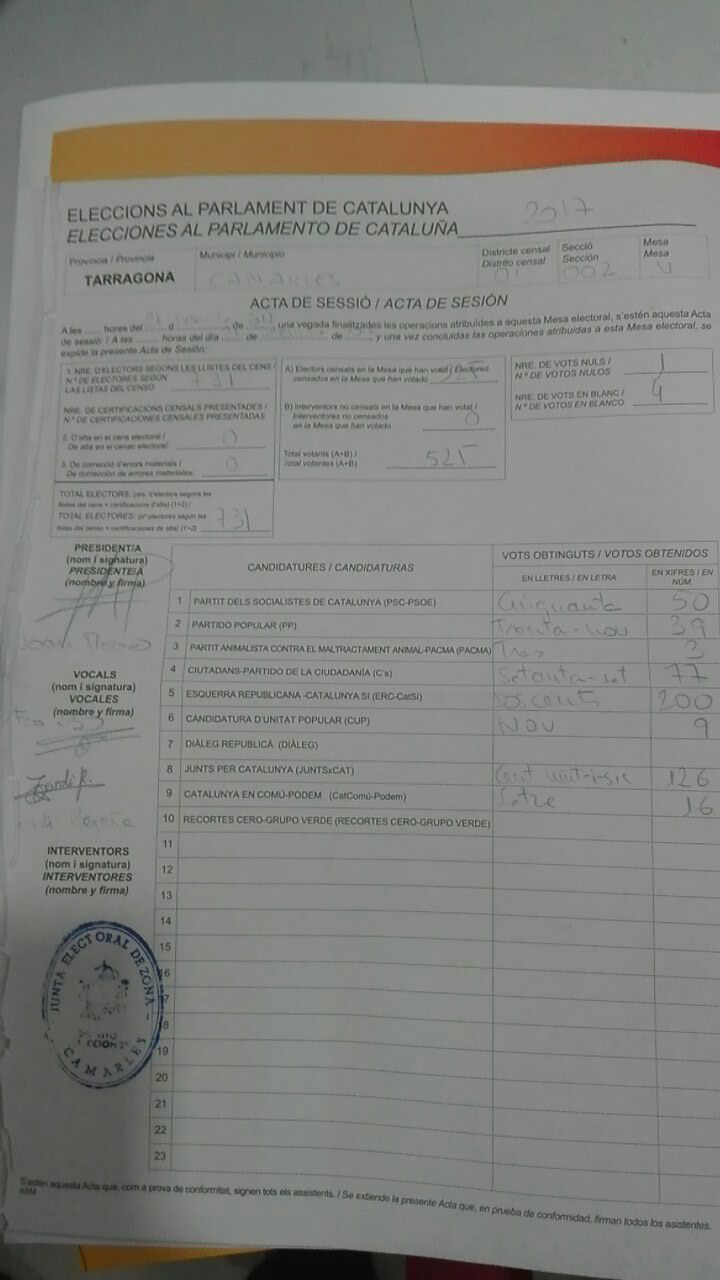 ELECCIONS AL PARLAMENT DE CATALUNYA 2017
ELECCIONES AL PARLAMENTO DE CATALUÑA
Província / Provincia
TARRAGONA
Municipi / Municipio
CAMARLES
Districte censal
Distrito censal
01
Secció
Sección
002
Mesa
Mesa
U
ACTA DE SESSIÓ / ACTA DE SESIÓN
A les ...... hores del ...... d ...... de ......, una vegada finalitzades les operacions atribuïdes a aquesta Mesa electoral, s'estén aquesta Acta
de sessió. / A las ...... horas del día ...... de ...... de ...... y una vez concluidas las operaciones atribuidas a esta Mesa electoral, se
expide la presente Acta de Sesión:
1. NRE. D'ELECTORS SEGONS LES LLISTES DEL CENS /
N.º DE ELECTORES SEGÚN
LAS LISTAS DEL CENSO 731
NRE. DE CERTIFICACIONS CENSALS PRESENTADES /
N.º DE CERTIFICACIONES CENSALES PRESENTADAS
2. D'alta en el cens electoral /
De alta en el censo electoral: 0
3. De correcció d'errors materials /
De corrección de errores materiales: 0
TOTAL ELECTORS: (nre. d'electors segons les
llistes del cens + certificacions d'alta) (1+2) /
TOTAL ELECTORES: (nº electores según las
listas del censo + certificaciones de alta) (1+2) 731
A) Electors censats en la Mesa que han votat / Electores
censados en la Mesa que han votado 525
B) Interventors no censats en la Mesa que han votat /
Interventores no censados
en la Mesa que han votado 0
Total votants (A+B) /
Total votantes (A+B) 525
NRE. DE VOTS NULS /
N.º DE VOTOS NULOS 1
NRE. DE VOTS EN BLANC /
N.º DE VOTOS EN BLANCO 4
PRESIDENT/A
(nom i signatura)
PRESIDENTE/A
(nombre y firma)
VOCALS
(nom i signatura)
VOCALES
(nombre y firma)
Jordi R.
INTERVENTORS
(nom i signatura)
INTERVENTORES
(nombre y firma)
JUNTA ELECTORAL DE ZONA
CAMARLES
CANDIDATURES / CANDIDATURAS
VOTS OBTINGUTS / VOTOS OBTENIDOS
EN LLETRES / EN LETRA
EN XIFRES / EN NÚM.
1 PARTIT DELS SOCIALISTES DE CATALUNYA (PSC-PSOE) Cinquanta 50
2 PARTIDO POPULAR (PP) Trenta-nou 39
3 PARTIT ANIMALISTA CONTRA EL MALTRACTAMENT ANIMAL-PACMA (PACMA) Tres 3
4 CIUTADANS-PARTIDO DE LA CIUDADANÍA (C's) Setanta-set 77
5 ESQUERRA REPUBLICANA -CATALUNYA SÍ (ERC-CatSí) Doscents 200
6 CANDIDATURA D'UNITAT POPULAR (CUP) Nou 9
7 DIÀLEG REPUBLICÀ (DIÀLEG)
8 JUNTS PER CATALUNYA (JUNTSxCAT) Cent vint-i-sis 126
9 CATALUNYA EN COMÚ-PODEM (CatComú-Podem) Setze 16
10 RECORTES CERO-GRUPO VERDE (RECORTES CERO-GRUPO VERDE)
11
12
13
14
15
16
17
18
19
20
21
22
23
S'estén aquesta Acta que, com a prova de conformitat, signen tots els assistents. / Se extiende la presente Acta que, en prueba de conformidad, firman todos los asistentes.